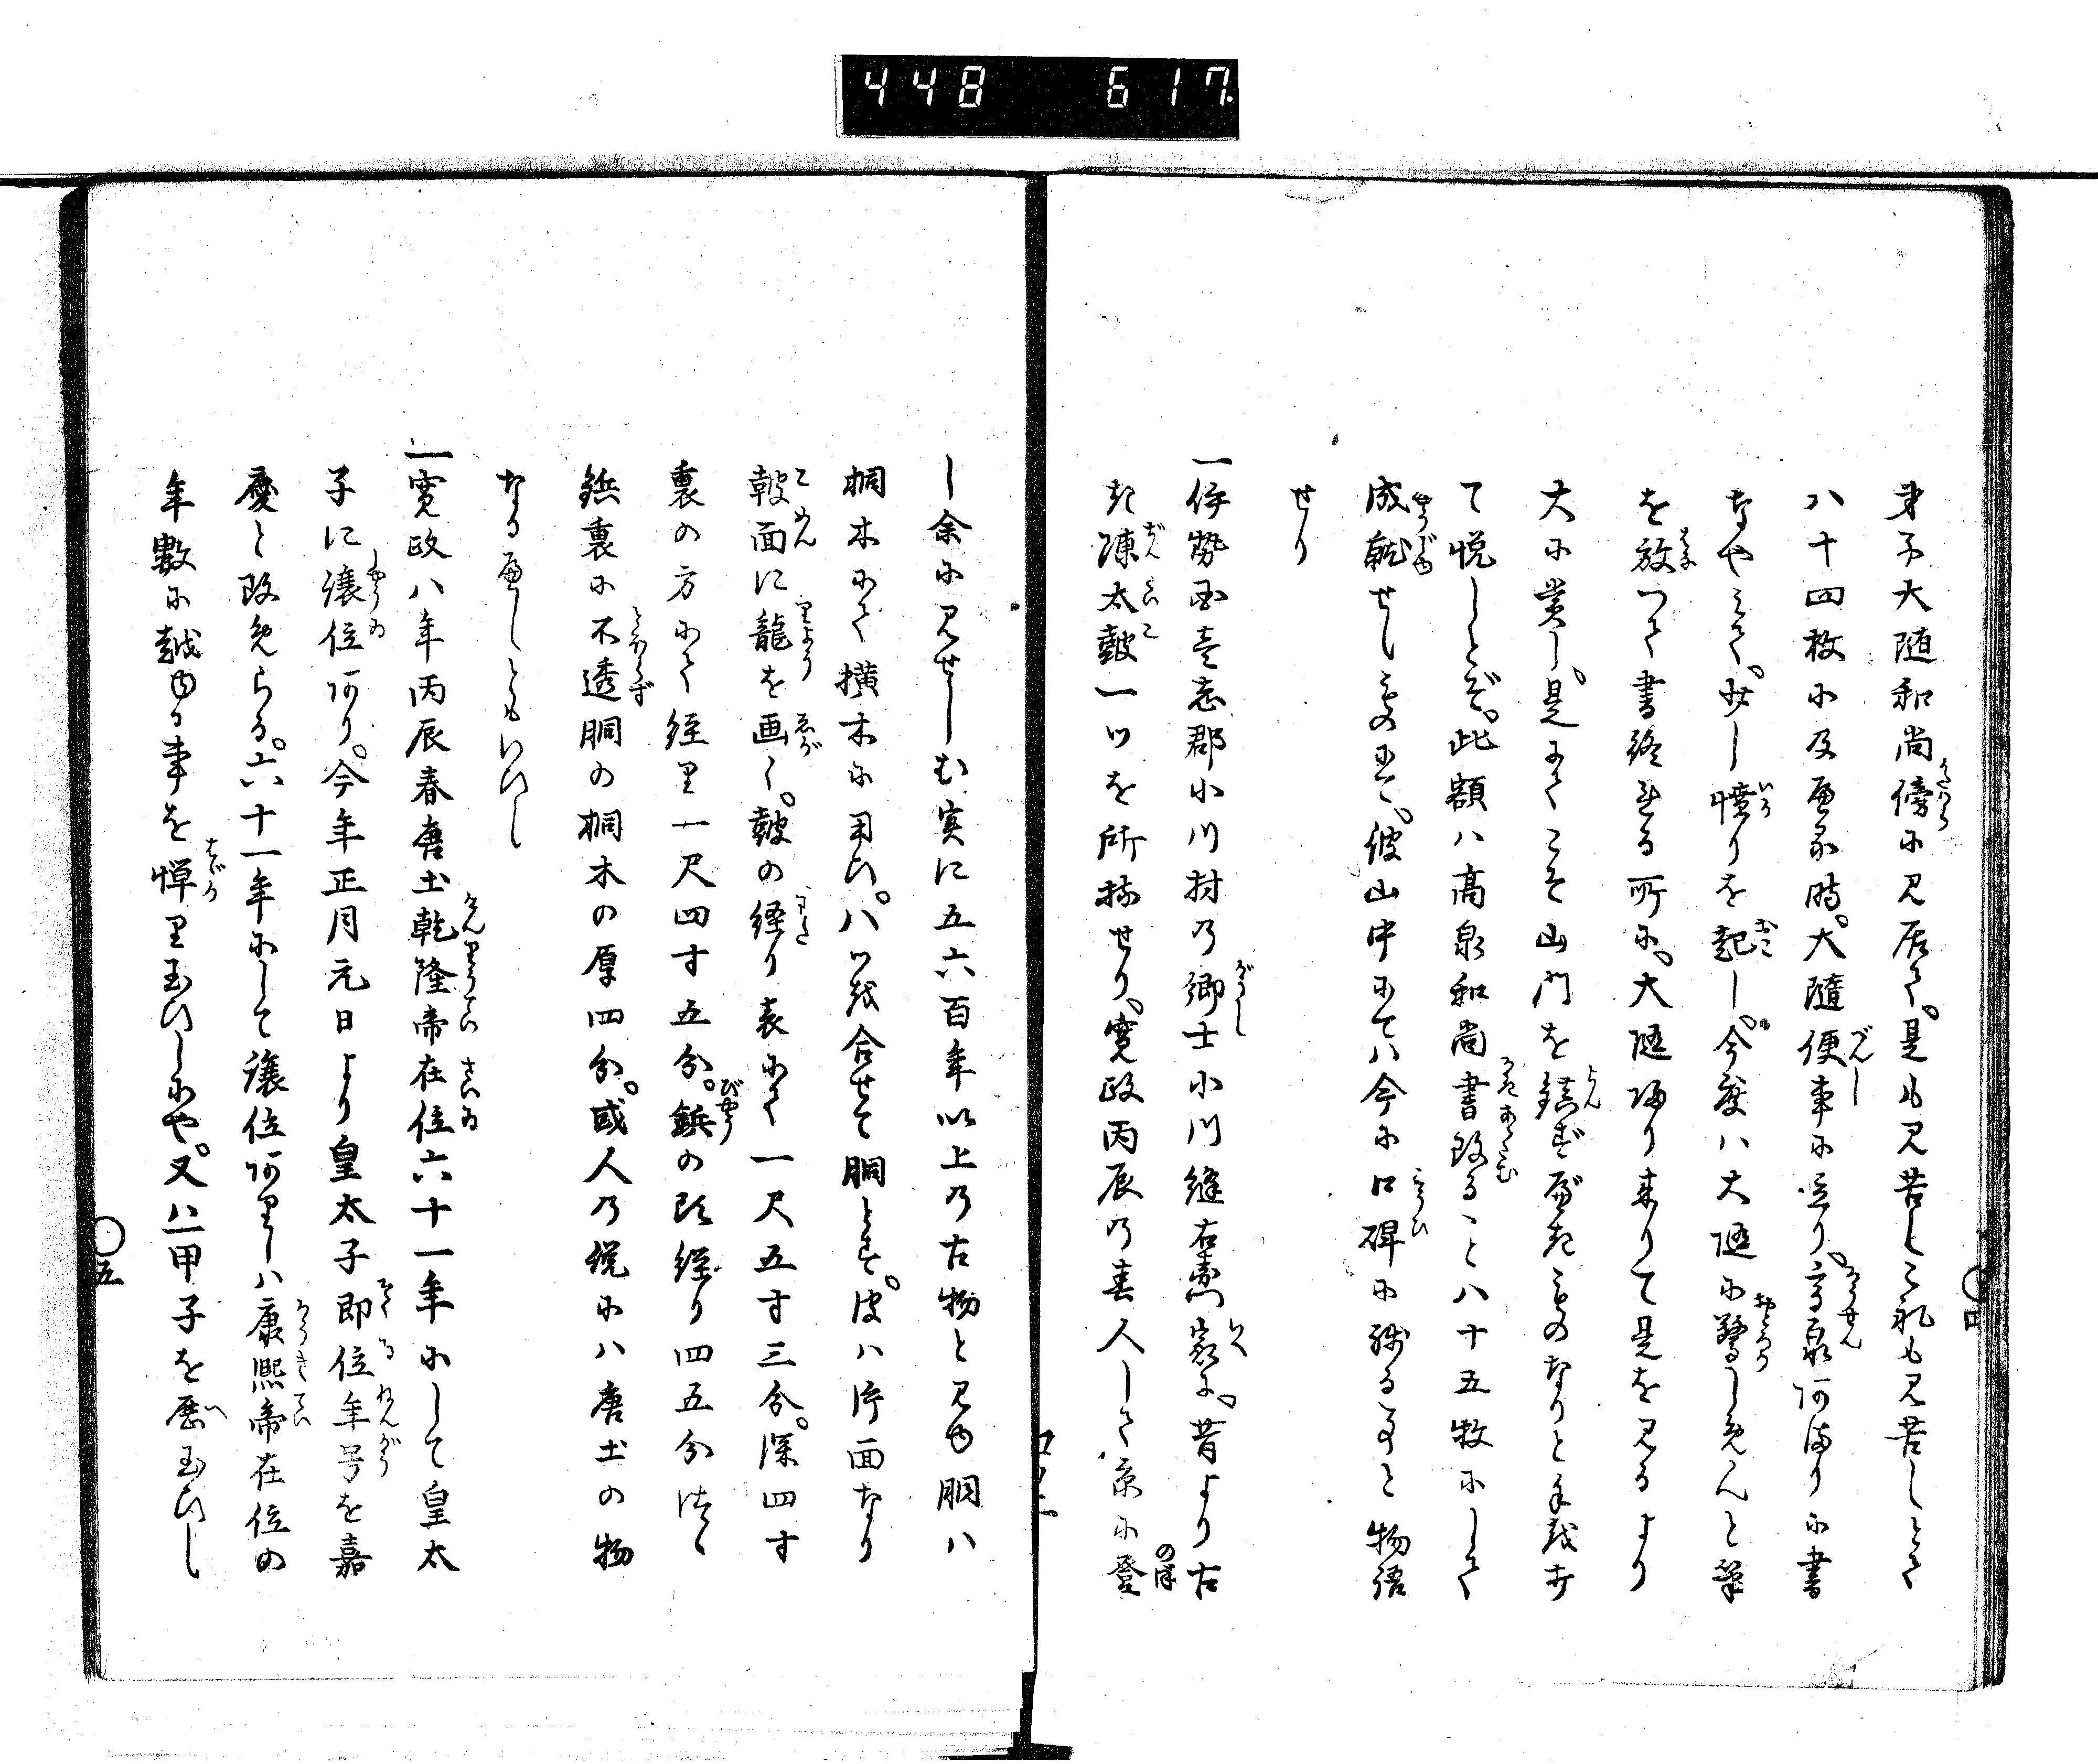 448 617
弟子大随和尚傍に見居て。是も見苦しこれも見苦しとて
八十四枚に及ぶ時。大隨便事に立り。高泉あまりに書
なやみて。少し憤りを起し。今度ハ大随に驚しめんと筆
を放つて書終る所に。大随帰り来りて是を見るより
大に賞し。是にてこそ山門を鎮ずべきものなりと手を打
て悦しとぞ。此額ハ高泉和尚書改ること八十五牧にして
成就せしものにて。彼山中にてハ今に口碑に残ると物語
せり
一伊勢国壱志郡小川村の郷士小川縫右衛門家に。昔より古
き陳太鼓一ツを所持せり。寛政丙辰の春人して京に登
し余に見せしむ実に五六百年以上の古物と見ゆ胴ハ
桐木にて横木に用ひ。八ツ組合せて胴とす。皮ハ片面なり
鼓面に龍を画く。鼓の経り表にて一尺五寸三分。深四寸
裏の方にて経り一尺四寸五分。鋲の頭経り四五分ほど
鋲裏に不透胴の桐木の厚四分。或人の説にハ唐土の物
なるべしともいひし
一寛政八年丙辰春唐土乾隆帝在位六十一年にして皇太
子に譲位あり。今年正月元日より皇太子即位年号を嘉
慶と改めらる。六十一年にして譲位ありしハ康熙帝在位の
年数に越ゆる事を憚り玉ひしにや。又ハ一甲子を歴玉ひし
五